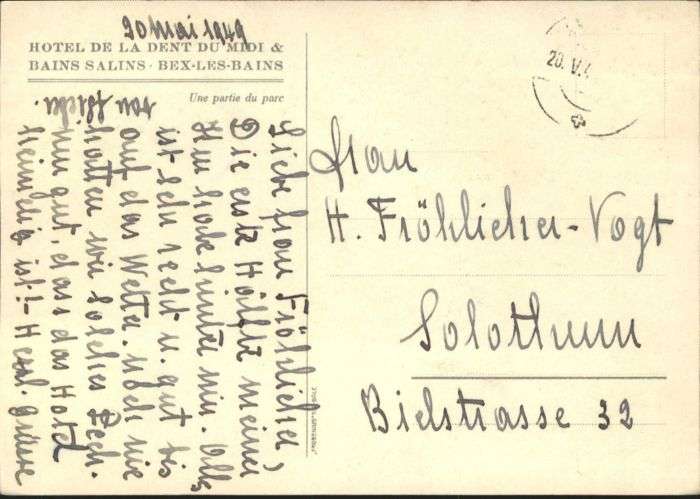 20 Mai 1949
HOTEL DE LA DENT DU MIDI &
BAINS SALINS · BEX-LES-BAINS
Une partie du parc
Liebe Frau Fröhlicher,
Die erste Hälfte meiner
Kur habe hinter mir. Alles
ist sehr recht u. gut bis
auf das Wetter. Noch nie
hatten wir solches Pech.
Nur gut, dass das Hotel
heimelig ist! – Herzl. Grüsse
von
Frau
H. Fröhlicher-Vogt
Solothurn
Bielstrasse 32
20. V.